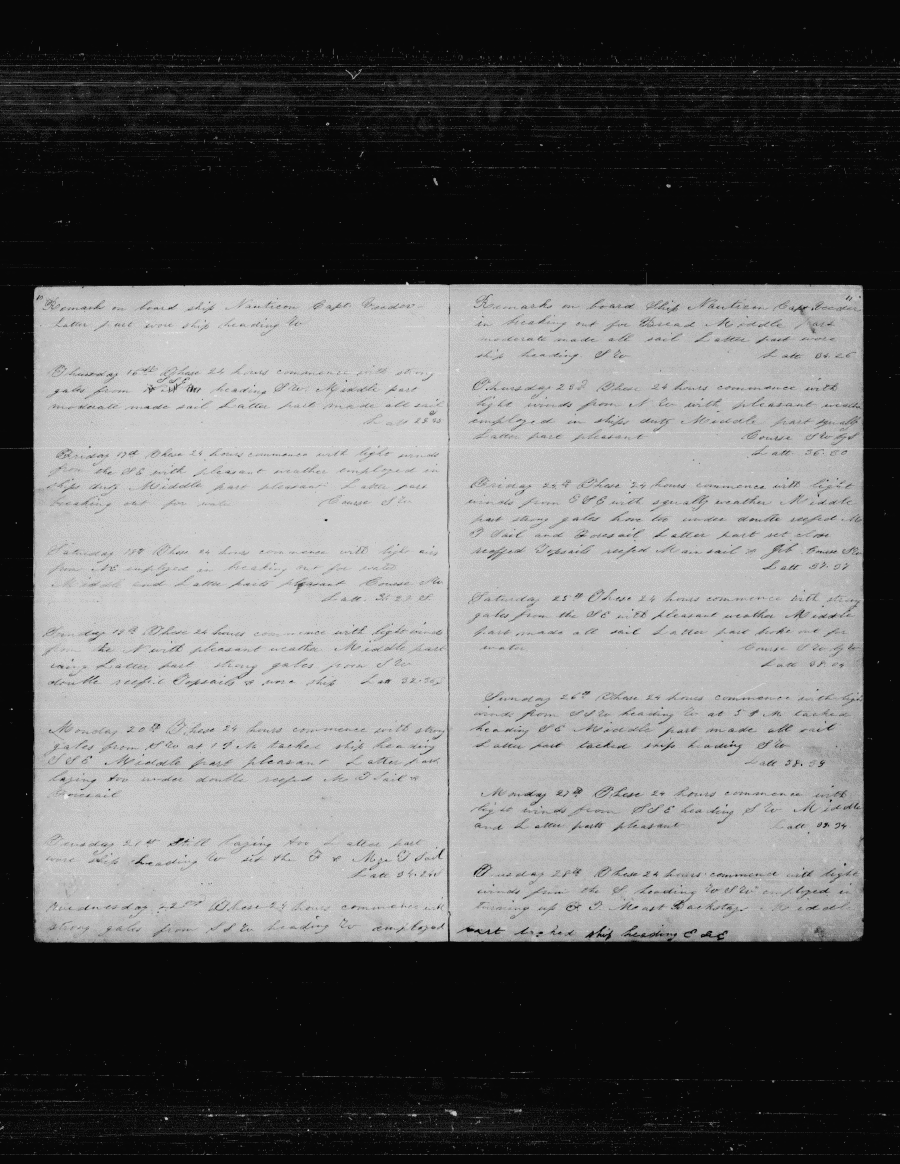 Remark on board ship Nauticon Capt Gooder
Latter part wore ship heading W
Thursday 16th These 24 hours commence with strong
gales from heading SW Middle part
moderate made sail Latter part made all sail
Latt
Friday 17th These 24 hours commence with light winds
from the SE with pleasant weather employed in
ships duty Middle part pleasant Latter part
breaking out for water Course SW
Saturday 18th These 24 hours commence with light airs
from NE employed in breaking out for water
Middle and Latter parts pleasant Course SW
Latt
Sunday 19th These 24 hours commence with light winds
from the N with pleasant weather Middle part
Latter part strong gales from SW
double reefed Topsails & wore ship Latt 32.
Monday 20th These 24 hours commence with strong
gales from SW at 1 P M tacked ship heading
SSE Middle part pleasant Latter part
laying too under double reefed M T Sail &
Foresail
Tuesday 21st Still laying too Latter part
wore ship heading W set the F & Mizn T Sail
Latt 34.
Wednesday 22nd These 24 hours commence with
strong gales from SSW heading W employed
Remarks on board Ship Nauticon Capt Gooder
in breaking out for Bread Middle part
moderate made all sail Latter part wore
ship heading SW Latt
Thursday 23d These 24 hours commence with
light winds from NW with pleasant weather
employed in ships duty Middle part squally
Latter part pleasant Course SW by S
Latt 36.
Friday 24th These 24 hours commence with light
winds from ESE with squally weather Middle
part strong gales hove too under double reefed M
T Sail and Foresail Latter part set close
reefed Topsails reefed Mainsail & Jib Course
Latt 37.37
Saturday 25th These 24 hours commence with strong
gales from the SE with pleasant weather Middle
part made all sail Latter part broke out for
water Course SW by W
Latt 38.
Sunday 26th These 24 hours commence with light
winds from SSW heading W at 5 P M tacked
heading SE Middle part made all sail
Latter part tacked ship heading SW
Latt 38.
Monday 27th These 24 hours commence with
light winds from SSE heading SW Middle
and Latter parts pleasant Latt
Tuesday 28th These 24 hours commence with light
winds from the S heading WSW employed in
turning up F T Mast Backstays Middel
part tacked ship heading